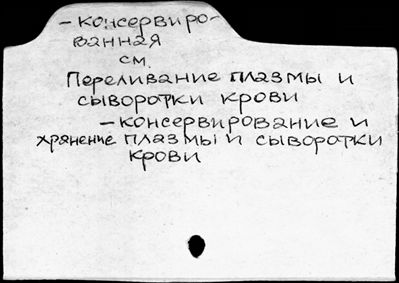 – консервиро-
ванная
см.
Переливание плазмы и
сыворотки крови
– консервирование и
хранение плазмы и сыворотки
крови